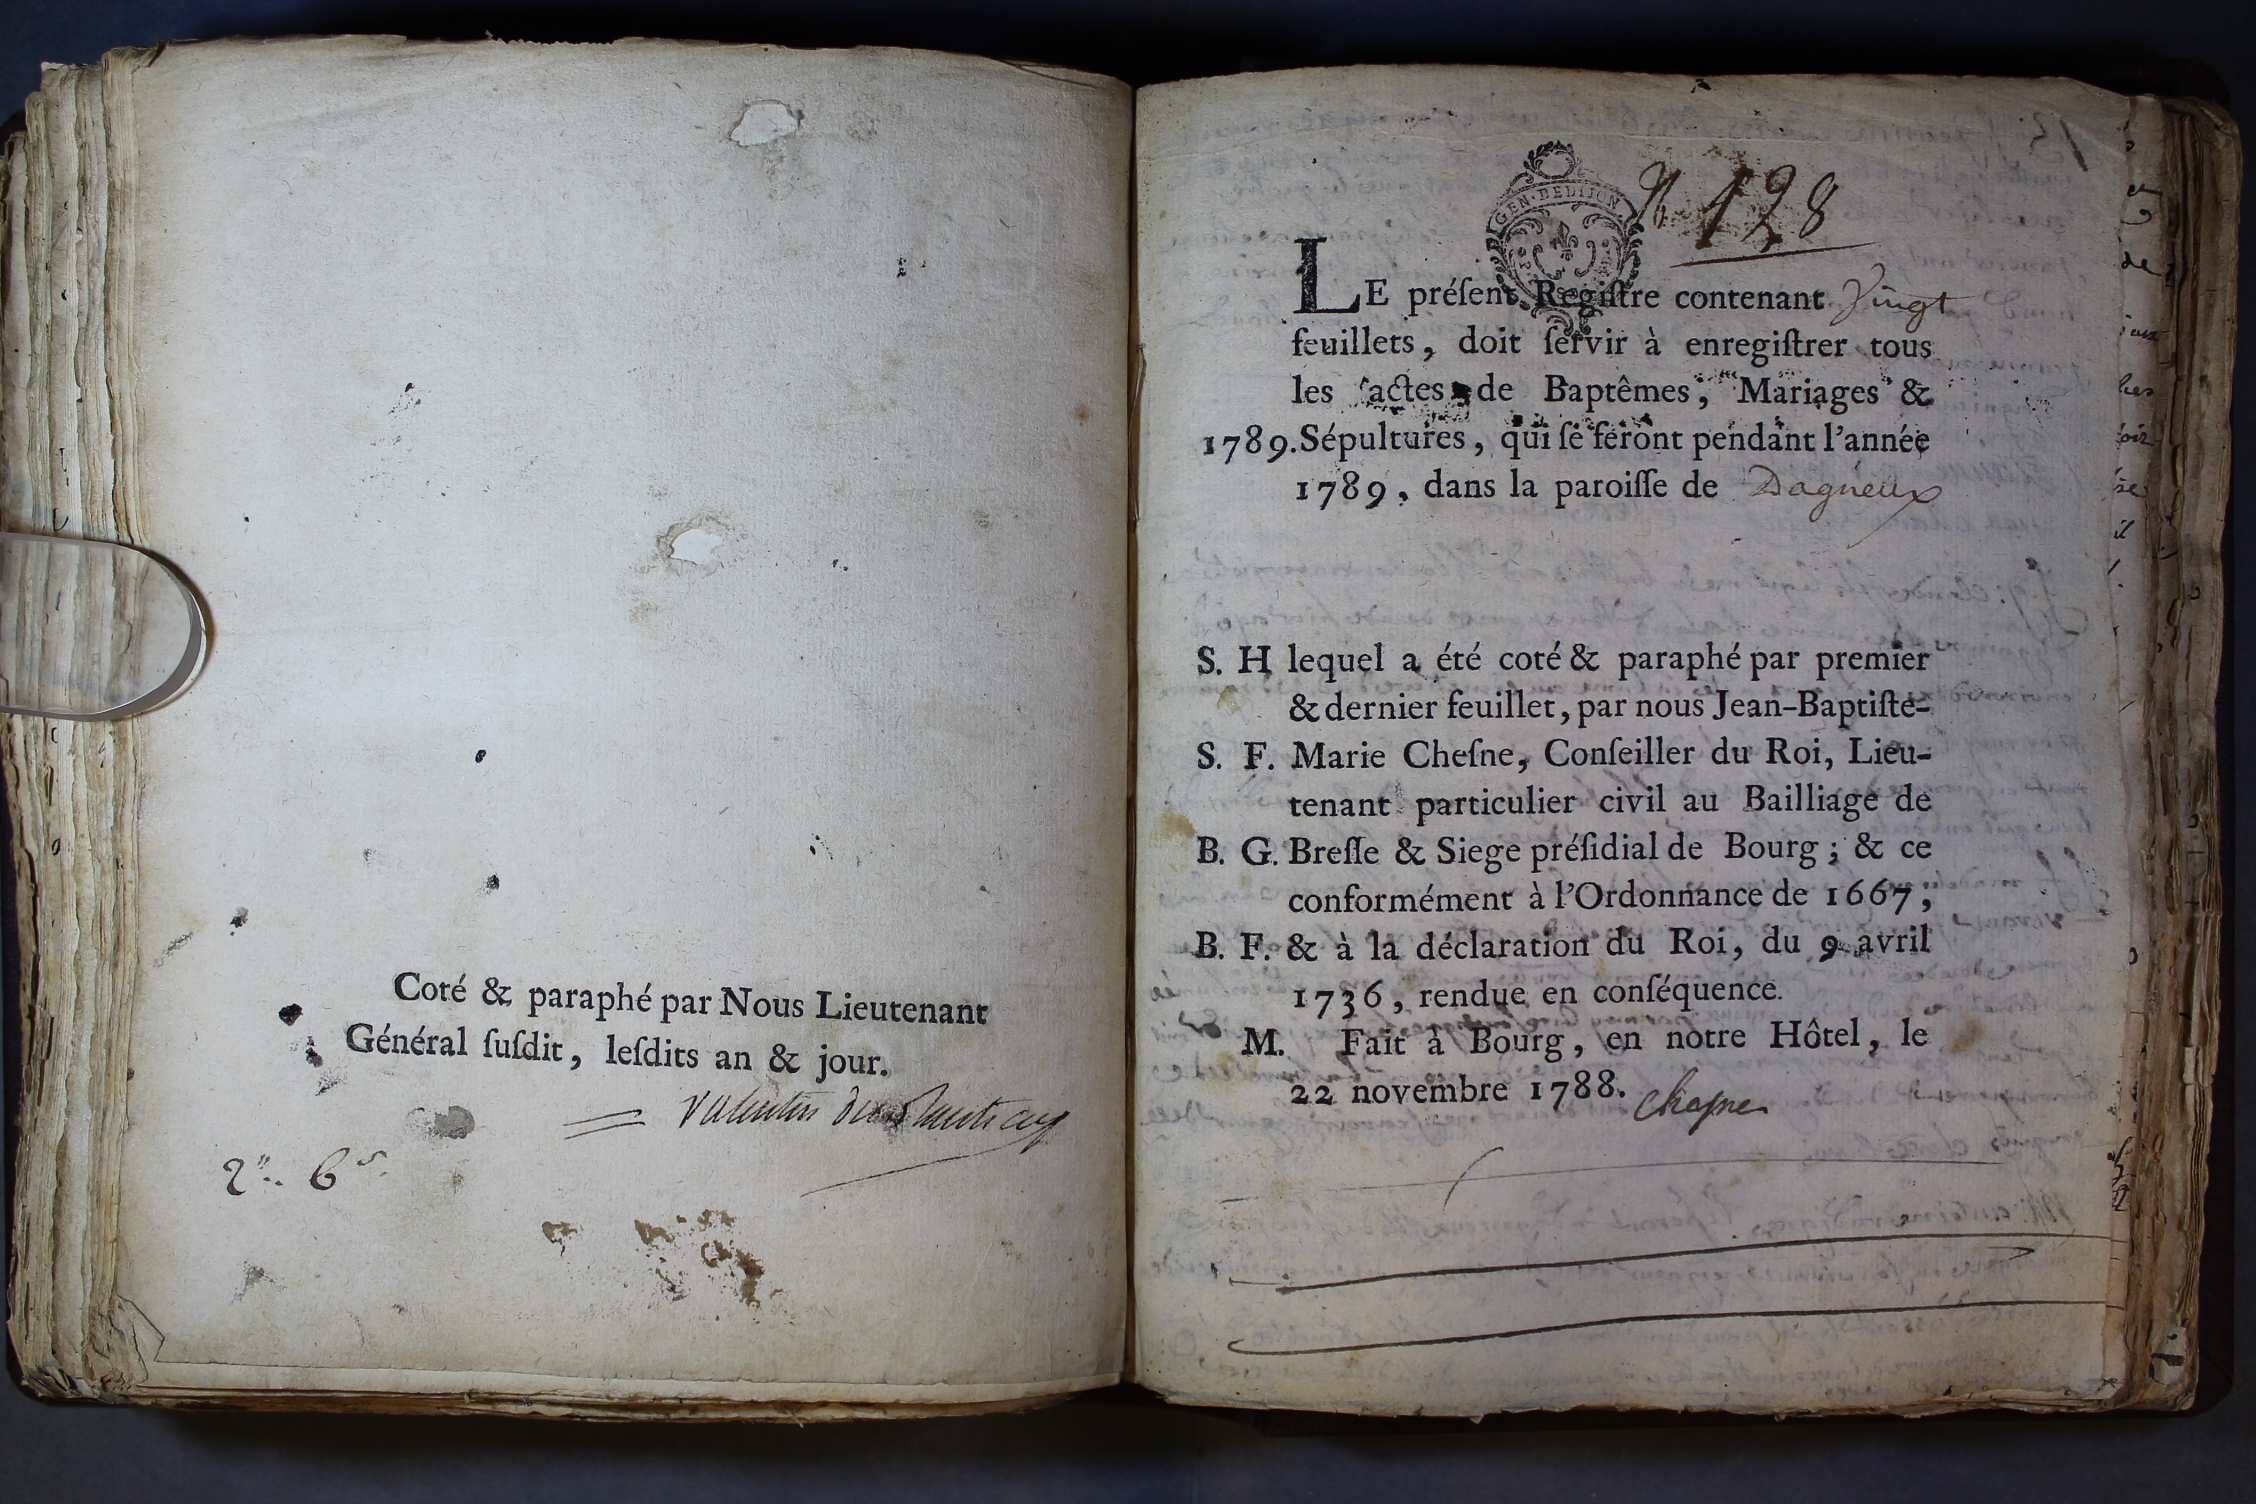 Coté & paraphé par Nous Lieutenant
Général ſuſdit, leſdits an & jour.
GEN. DE DIJON
128
LE préſent Regiſtre contenant Vingt
feuillets, doit ſervir à enregiſtrer tous
les actes de Baptêmes, Mariages &
1789. Sépultures, qui ſe feront pendant l'année
1789, dans la paroiſſe de Dagneux
S. H lequel a été coté & paraphé par premier
& dernier feuillet, par nous Jean-Baptiſte-
S. F. Marie Cheſne, Conſeiller du Roi, Lieu-
tenant particulier civil au Bailliage de
B. G. Breſſe & Siege préſidial de Bourg ; & ce
conformément à l'Ordonnance de 1667,
B. F. & à la déclaration du Roi, du 9 avril
1736, rendue en conſéquence.
M. Fait à Bourg, en notre Hôtel, le
22 novembre 1788. Cheſne